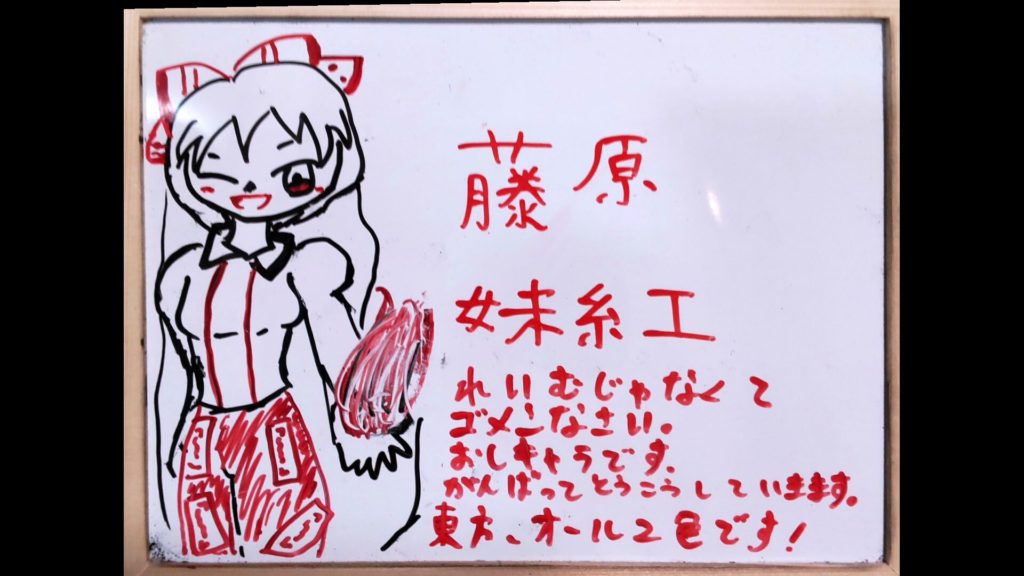 藤原
妹紅
れいむじゃなくて
ゴメンなさい。
おしキャラです。
がんばってとうこうしていきます。
東方、オール2色です!